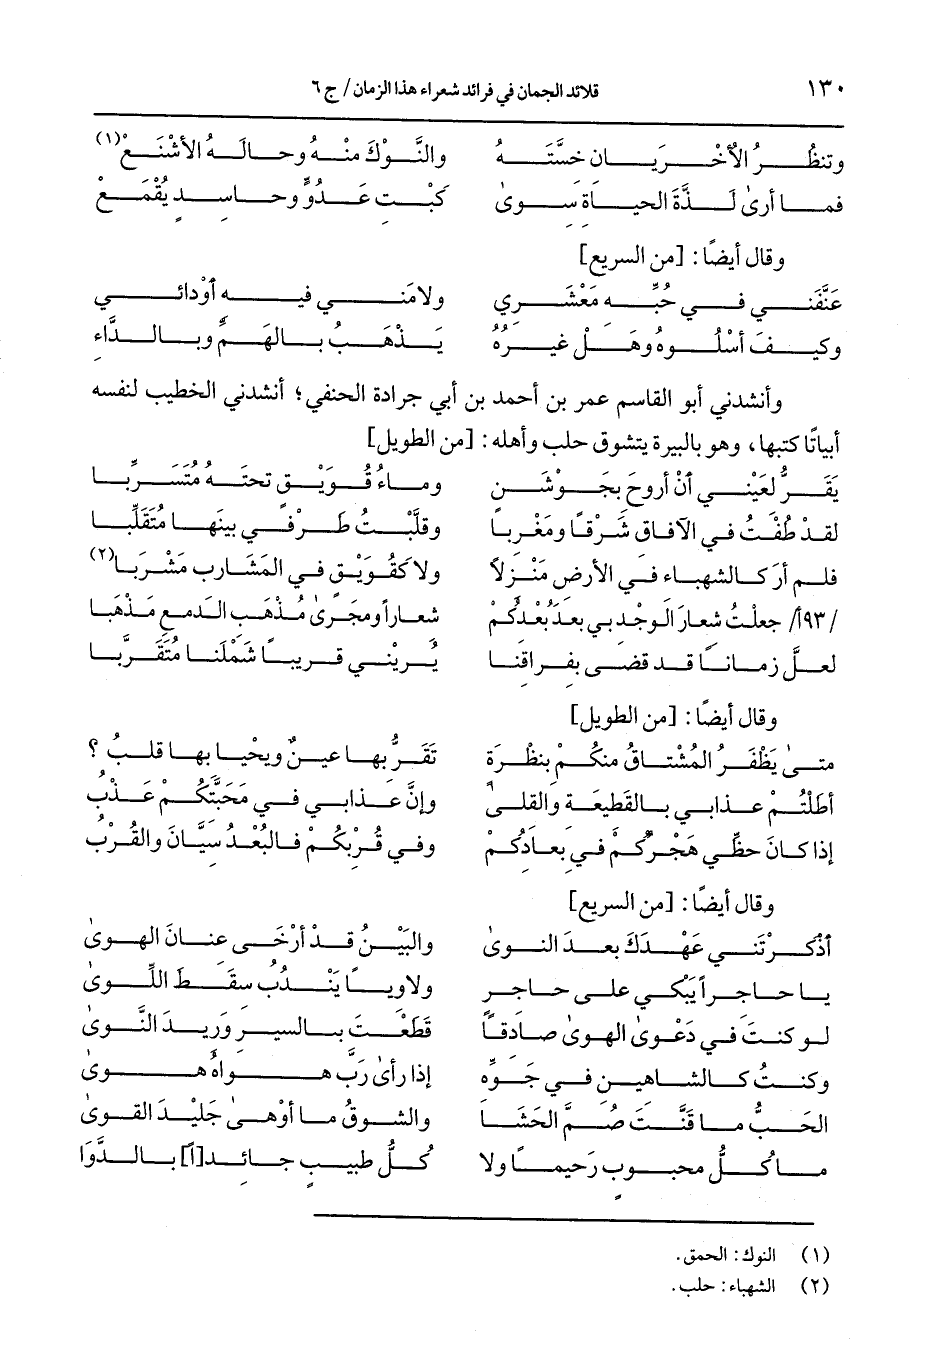 ١٣٠ قلائد الجمان في فرائد شعراء هذا الزمان/ ج٦
وتنظُـرُ الأخْـرَيـان خسَّتَـهُ والنَّـوْكَ منْـهُ وحـالَـهُ الأشْنَـعْ(١)
فمـا أرىٰ لَـذَّةَ الحيـاةِ سـوىٰ كَبْـتِ عَـدُوٍّ وحـاسِـدٍ يُقْمَـعْ
وقال أيضًا: [من السريع]
عَنَّفَنـي فـي حُبِّـهِ مَعْشَـري ولامَنـي فيـه أوْدائـي
وكيـفَ أسْلُـوهُ وهَـلْ غيـرُهُ يَـذْهَـبُ بـالهَـمِّ وبـالـدَّاءِ
وأنشدني أبو القاسم عمر بن أحمد بن أبي جرادة الحنفي؛ أنشدني الخطيب لنفسه
أبياتًا كتبها، وهو بالبيرة يتشوق حلب وأهله: [من الطويل]
يَقَـرُّ لعَيْنـي أنْ أروحَ بجَـوْشَـنٍ ومـاءُ قُـوَيْـقٍ تحتَـهُ مُتَسَـرِّبـا
لقدْ طُفْتُ في الآفاقِ شَرْقًا ومَغْرِبـا وقلَّبْـتُ طَـرْفـي بينَهـا مُتَقَلِّبـا
فلـم أرَ كـالشهبـاءِ فـي الأرضِ مَنْـزِلاً ولا كَقُـوَيْـقٍ في المَشَاربِ مَشْرَبـا(٢)
/١٩٣أ/ جعلْتُ شعارَ الوجْدِ بي بعدَ بُعْدِكُمْ شعاراً ومجْرىٰ مُذْهَبِ الدمعِ مَذْهَبا
لعـلَّ زمـانًـا قـد قضـى بفـراقنـا يُـرِيْنـي قـريبًـا شَمْلَنـا مُتَقَـرِّبـا
وقال أيضًا: [من الطويل]
متىٰ يَظْفَـرُ المُشْتـاقُ منكـمْ بنظْـرَةٍ تَقَـرُّ بهـا عيـنٌ ويحْيـا بهـا قلـبُ؟
أطَلْتُـمْ عـذابـي بـالقَطيعَـةِ والقلـى وإنَّ عَـذابـي فـي مَحَبَّتِكُـمْ عَـذْبُ
إذا كـانَ حظِّـي هَجْـرَكُـمْ في بعـادِكُـمْ وفـي قُـرْبِكُـمْ فـالبُعْـدُ سيَّـانَ والقُـرْبُ
وقال أيضًا: [من السريع]
أذْكَـرْتَنـي عَهْـدَكَ بعـدَ النـوىٰ والبَيْـنُ قـدْ أرْخَـى عنـانَ الهـوىٰ
يـا حـاجـراً يَبْكـي علـى حـاجـرٍ ولاويًـا يَنْـدُبُ سِقْـطَ اللِّـوىٰ
لـو كنـتَ فـي دَعْـوىٰ الهـوىٰ صـادقـًا قَطَعْـتَ بـالسيـرِ وَرِيـدَ النَّـوىٰ
وكنـتُ كـالشـاهيـنِ فـي جَـوِّهِ إذا رأىٰ رَبَّ هـواهُ هـوىٰ
الحُـبُّ مـا فَتَّـتَ صُـمَّ الحَشَـا والشـوقُ مـا أوْهـىٰ جَليْـدَ القـوىٰ
مـا كُـلُّ محبـوبٍ رَحيمـًا ولا كُـلُّ طبيـبٍ جـائـد[اً] بـالـدَّوَا
(١) النوك: الحمق.
(٢) الشهباء: حلب.